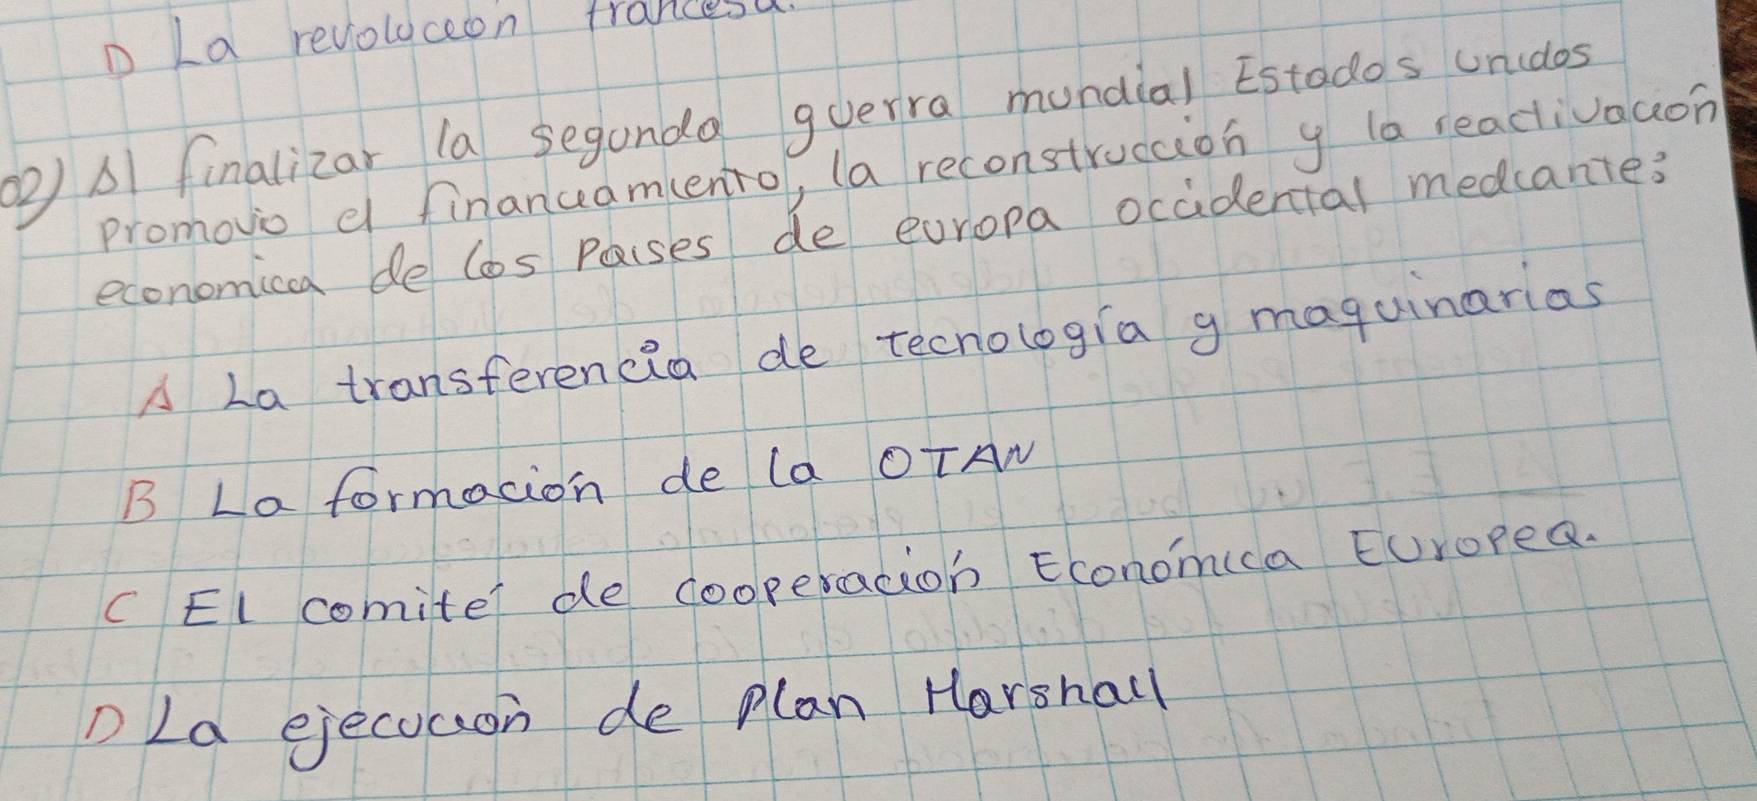 D La revolución francesa.
02) Al finalizar la segunda guerra mundial Estados unidos
promovio el financiamiento, la reconstrucción y la reactivación
economica de los Paises de europa occidental mediante:
A La transferencia de tecnología y maquinarias
B La formación de la OTAN
C El comité de cooperación Económica Europea.
D La ejecución de Plan Marshall